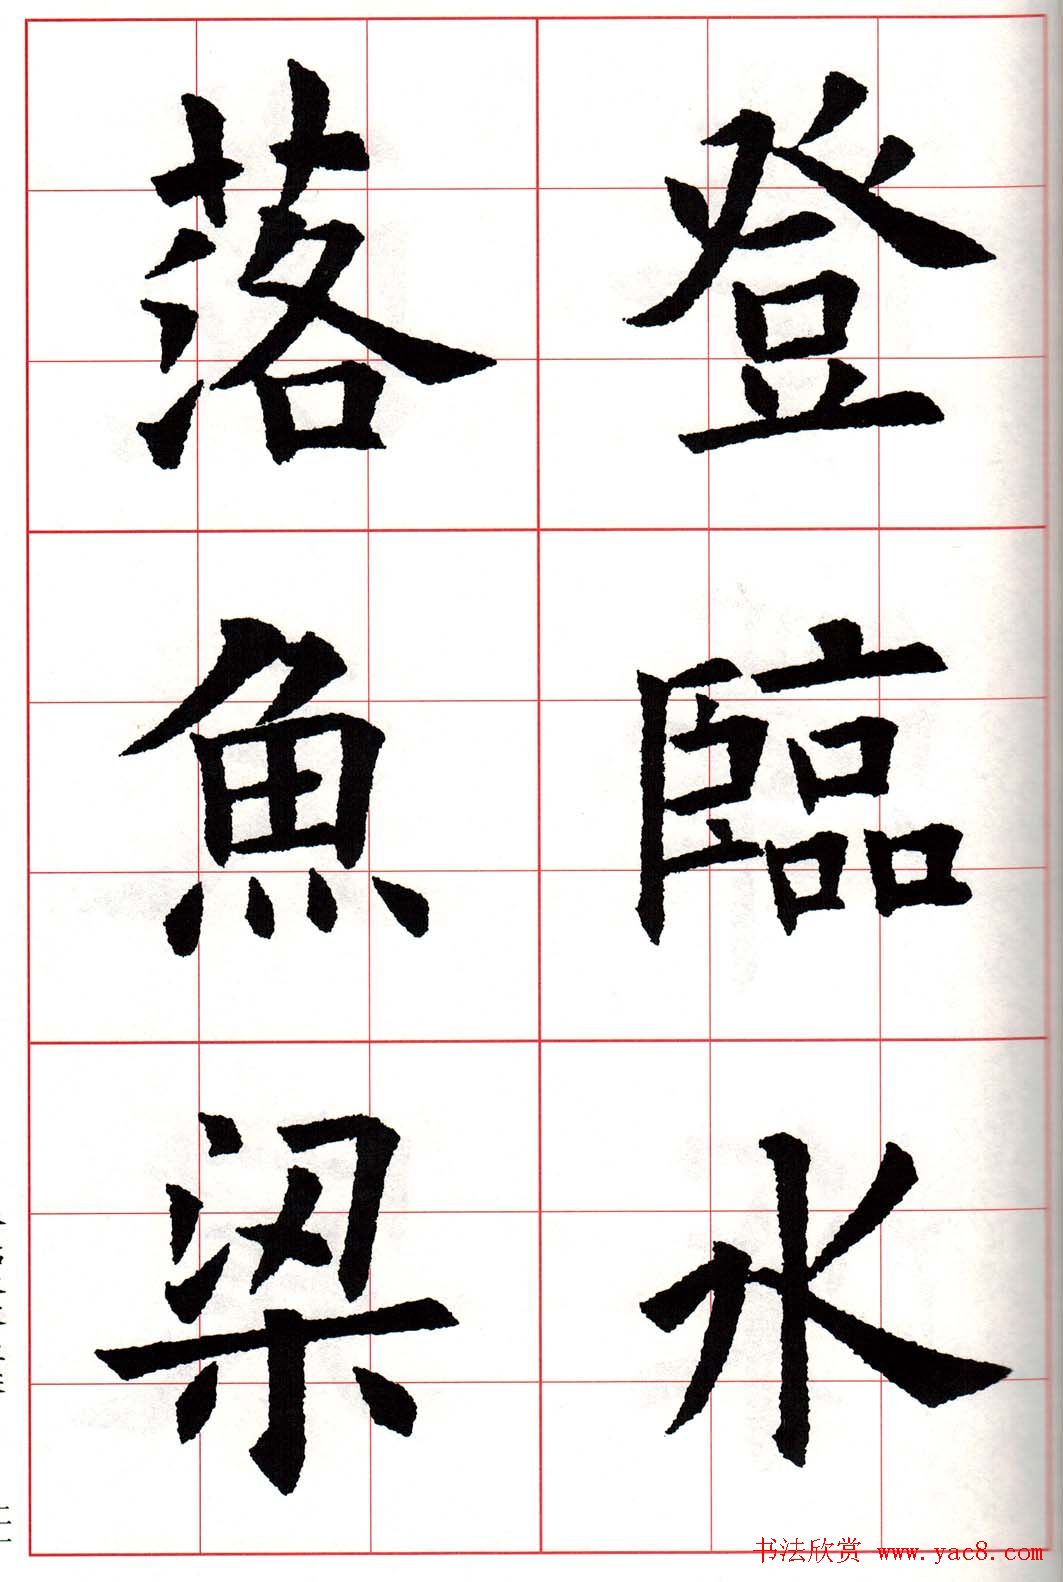 登臨水
落魚梁
书法欣赏 www.yac8.com